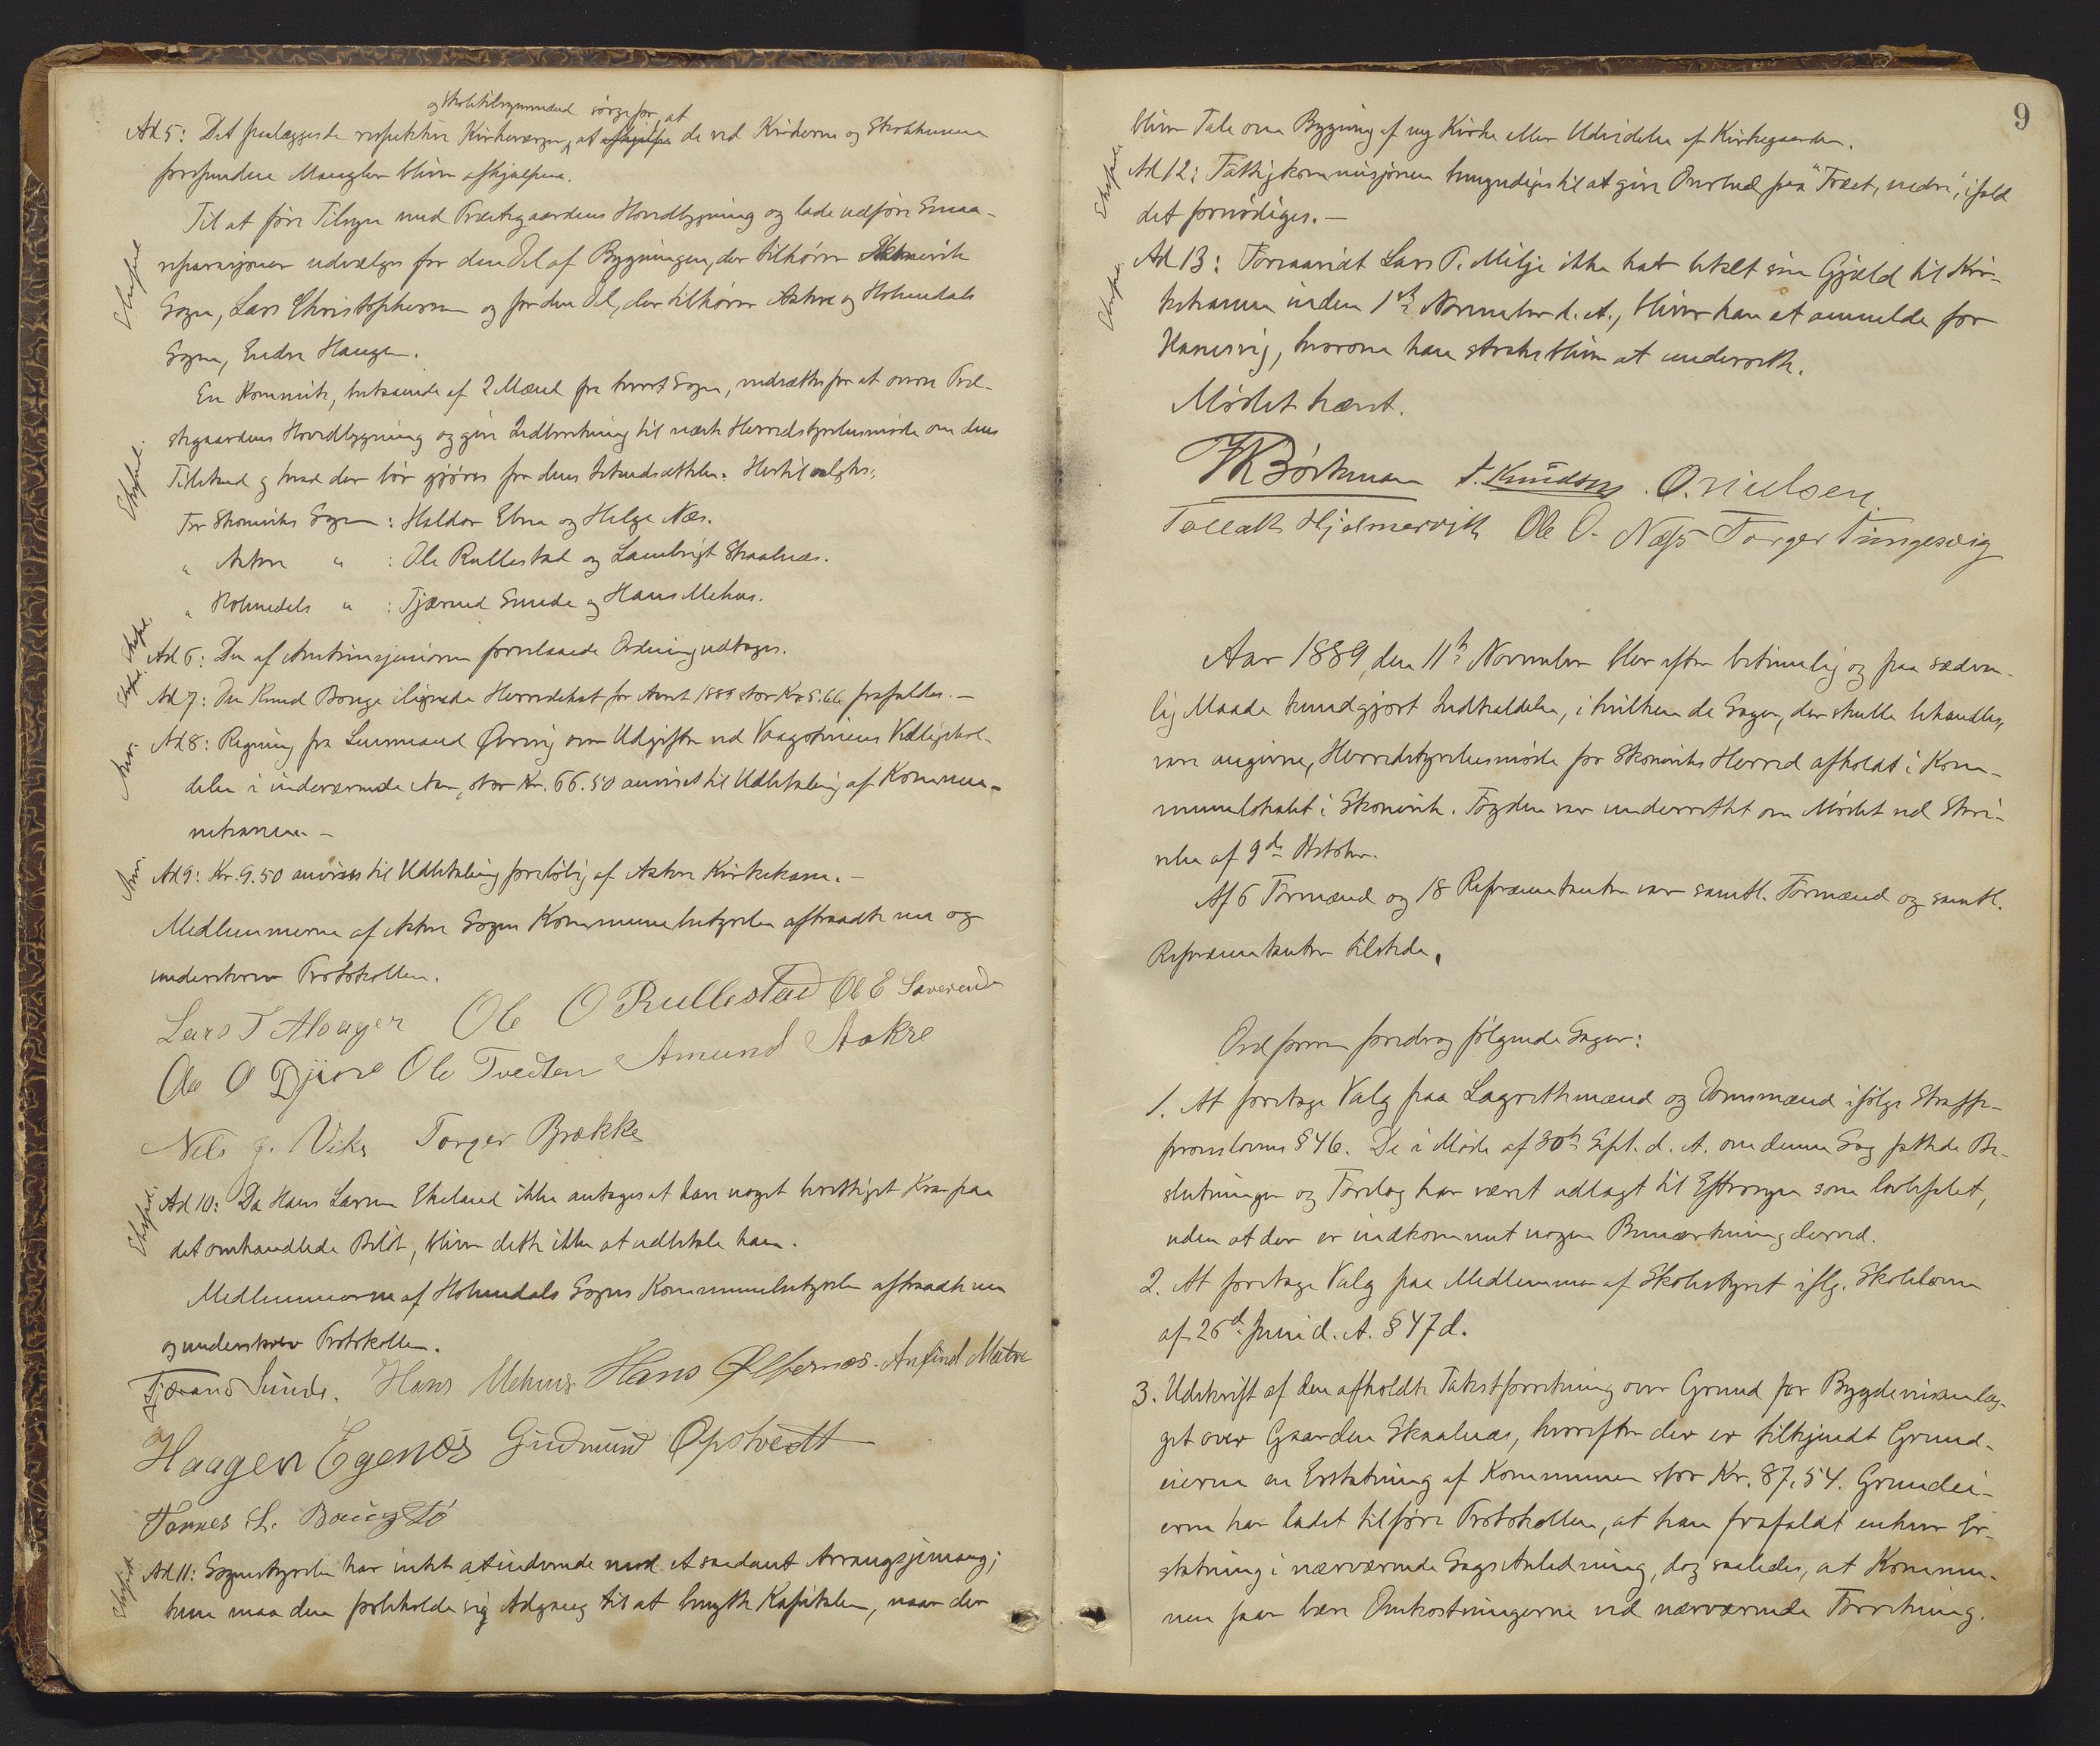 og Skoletilsynsmænd sørge for, at
Ad 5: Det paalægges de respektive Kirkeværger, at afhjælpe de ved Kirkerne og Skolehusene
forefundne Mangler bliver afhjulpne.
Til at føre Tilsyn med Præstegaardens Hovedbygning og lade udføre Smaa-
reparasjoner udvælges for den Del af Bygningen, der tilhører Skonevik
Sogn, Lars Christophersen og for den Del, der tilhører Aakre og Holmedals
Sogne, Endre Haugen.
Ekspd.
En Kommite, bestaaende af 2 Mænd fra hvert Sogn, nedsættes for at overse Præ-
stegaardens Hovedbygning og give Indberetning til næste Herredsstyrelsesmøde om dens
Tilstand og hvad der bør gjøres for dens Istandsættelse. Hertil valgtes:
Ekspd.
For Skoneviks Sogn: Haldor Ebne og Helge Næs.
" Aakre " : Ole Rullestad og Lambrigt Skaalnæs.
" Holmedals " : Tjærand Sunde og Hans Mehus.
Ad 6: Den af Amtsingeniøren foreslaaede Ordning vedtages.
Ekspd.
Ad 7: Den Knud Bouge ilignede Herredsskat for Aaret 1889 stor Kr. 5.66 frafaldes. –
Ekspd.
Ad 8: Regning fra Lensmand Øvrevig over Udgifter ved Vedligehol-
delse i indeværende Aar, stor Kr. 66.50 anvises til Udbetaling af Kommu-
nekassen –
Anv.
Ad 9: Kr. 9.50 anvises til Udbetaling foreløbig af Aakre Kirkekasse. –
Anv.
Medlemmerne af Aakre Sogns Kommunebestyrelse aftraadte nu og
underskrev Protokollen.
Lars T Alsager Ole O Rullestad Ole E Saverend
Ole O Djure Ole Tvedten Amund Aakre
Nels J. Vike Torger Brække
Ad 10: Da Hans Larsen Ekeland ikke antages at have noget berettiget Krav paa
det omhandlede Beløb, bliver dette ikke at udbetale ham.
Ekspd.
Medlemmerne af Holmedals Sogns Kommunebestyrelse aftraadte nu
og underskrev Protokollen.
Tjærand Sunde. Hans Mehus Hans Ølfernæs. Anfind Matre
Haagen Egenæs Gudmund Opstvedt
Tonnes L. Baugstø
Ad 11: Sognestyrelsen har intet at indvende mod et saadant Arrangsjemang;
kun maa den forbeholde sig Adgang til at benytte Kapitalen, naar der
Ekspd.
9
bliver Tale om Bygning af ny Kirke eller Udvidelse af Kirkegaarden.
Ad 12: Fattigkommisjonen bemyndiges til at give Overbud paa "Træet, nedre", ifald
det fornødiges. –
Ekspd.
Ad 13: Forsaavidt Lars P. Milje ikke har betalt sin Gjæld til Kir-
kekassen inden 1ste November d. A., bliver han at anmelde for
Hanevig, hvorom han straks bliver at underrette.
Ekspd.
Mødet hævet.
J. Knudsen O. Nielsen
Tollak Hjelmervik Ole O. Næss Torger Tungesvig
Aar 1889, den 11te November blev efter betimelig og paa sædvan-
lig Maade kundgjort Indkaldelse, i hvilken de Sager, der skulle behandles,
vare angivne, Herredsstyrelsesmøde for Skoneviks Herred afholdt i Kom-
munelokalet i Skonevik. Fogden var underrettet om Mødet ved Skri-
velse af 9de Oktober.
Af 6 Formænd og 18 Repræsentanter var samtl. Formænd og samtl.
Repræsentanter tilstede.
Ordføreren foredrog følgende Sager:
1. At foretage Valg paa Lagrettemænd og Domsmænd ifølge Straffe-
proseslovens § 46. De i Møde af 30te Sept. d. A. om denne Sag fattede Be-
slutninger og Forslag har været udlagt til Eftersyn som lovbefalet,
uden at der er indkommet nogen Bemærkning derved.
2. At foretage Valg paa Medlemmer af Skolestyret iflg. Skoleloven
af 26de Juni d. A. § 47 d.
3. Udskrift af den afholdte Takstforretning over Grund for Bygdeveisanlæg-
get over Gaarden Skaalnæs, hvorefter der er tilkjendt Grund-
eierne en Erstatning af Kommunen stor Kr. 87,54. Grundei-
eren har ladet tilføre Protokollen, at han frafaldt enhver Er-
statning i nærværende Sags Anledning, dog saaledes, at Kommu-
nen faar bære Omkostningerne ved nærværende Forretning.